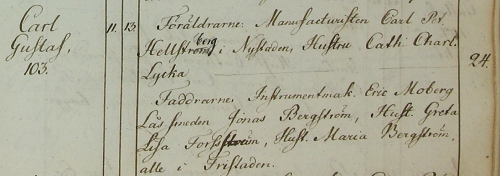 Carl
Gustaf,
103.
11. 13. Föräldrarne: Manufacturisten Carl Pr.
Hellströmberg i Nystaden, Hustru Cath. Charl.
Lycka
24.
Faddrarne, Instrumentmak. Eric Moberg
Låssmeden Jonas Bergström, Hust. Greta
Lisa Forsström, Hust. Maria Bergström,
alle i Fristaden.